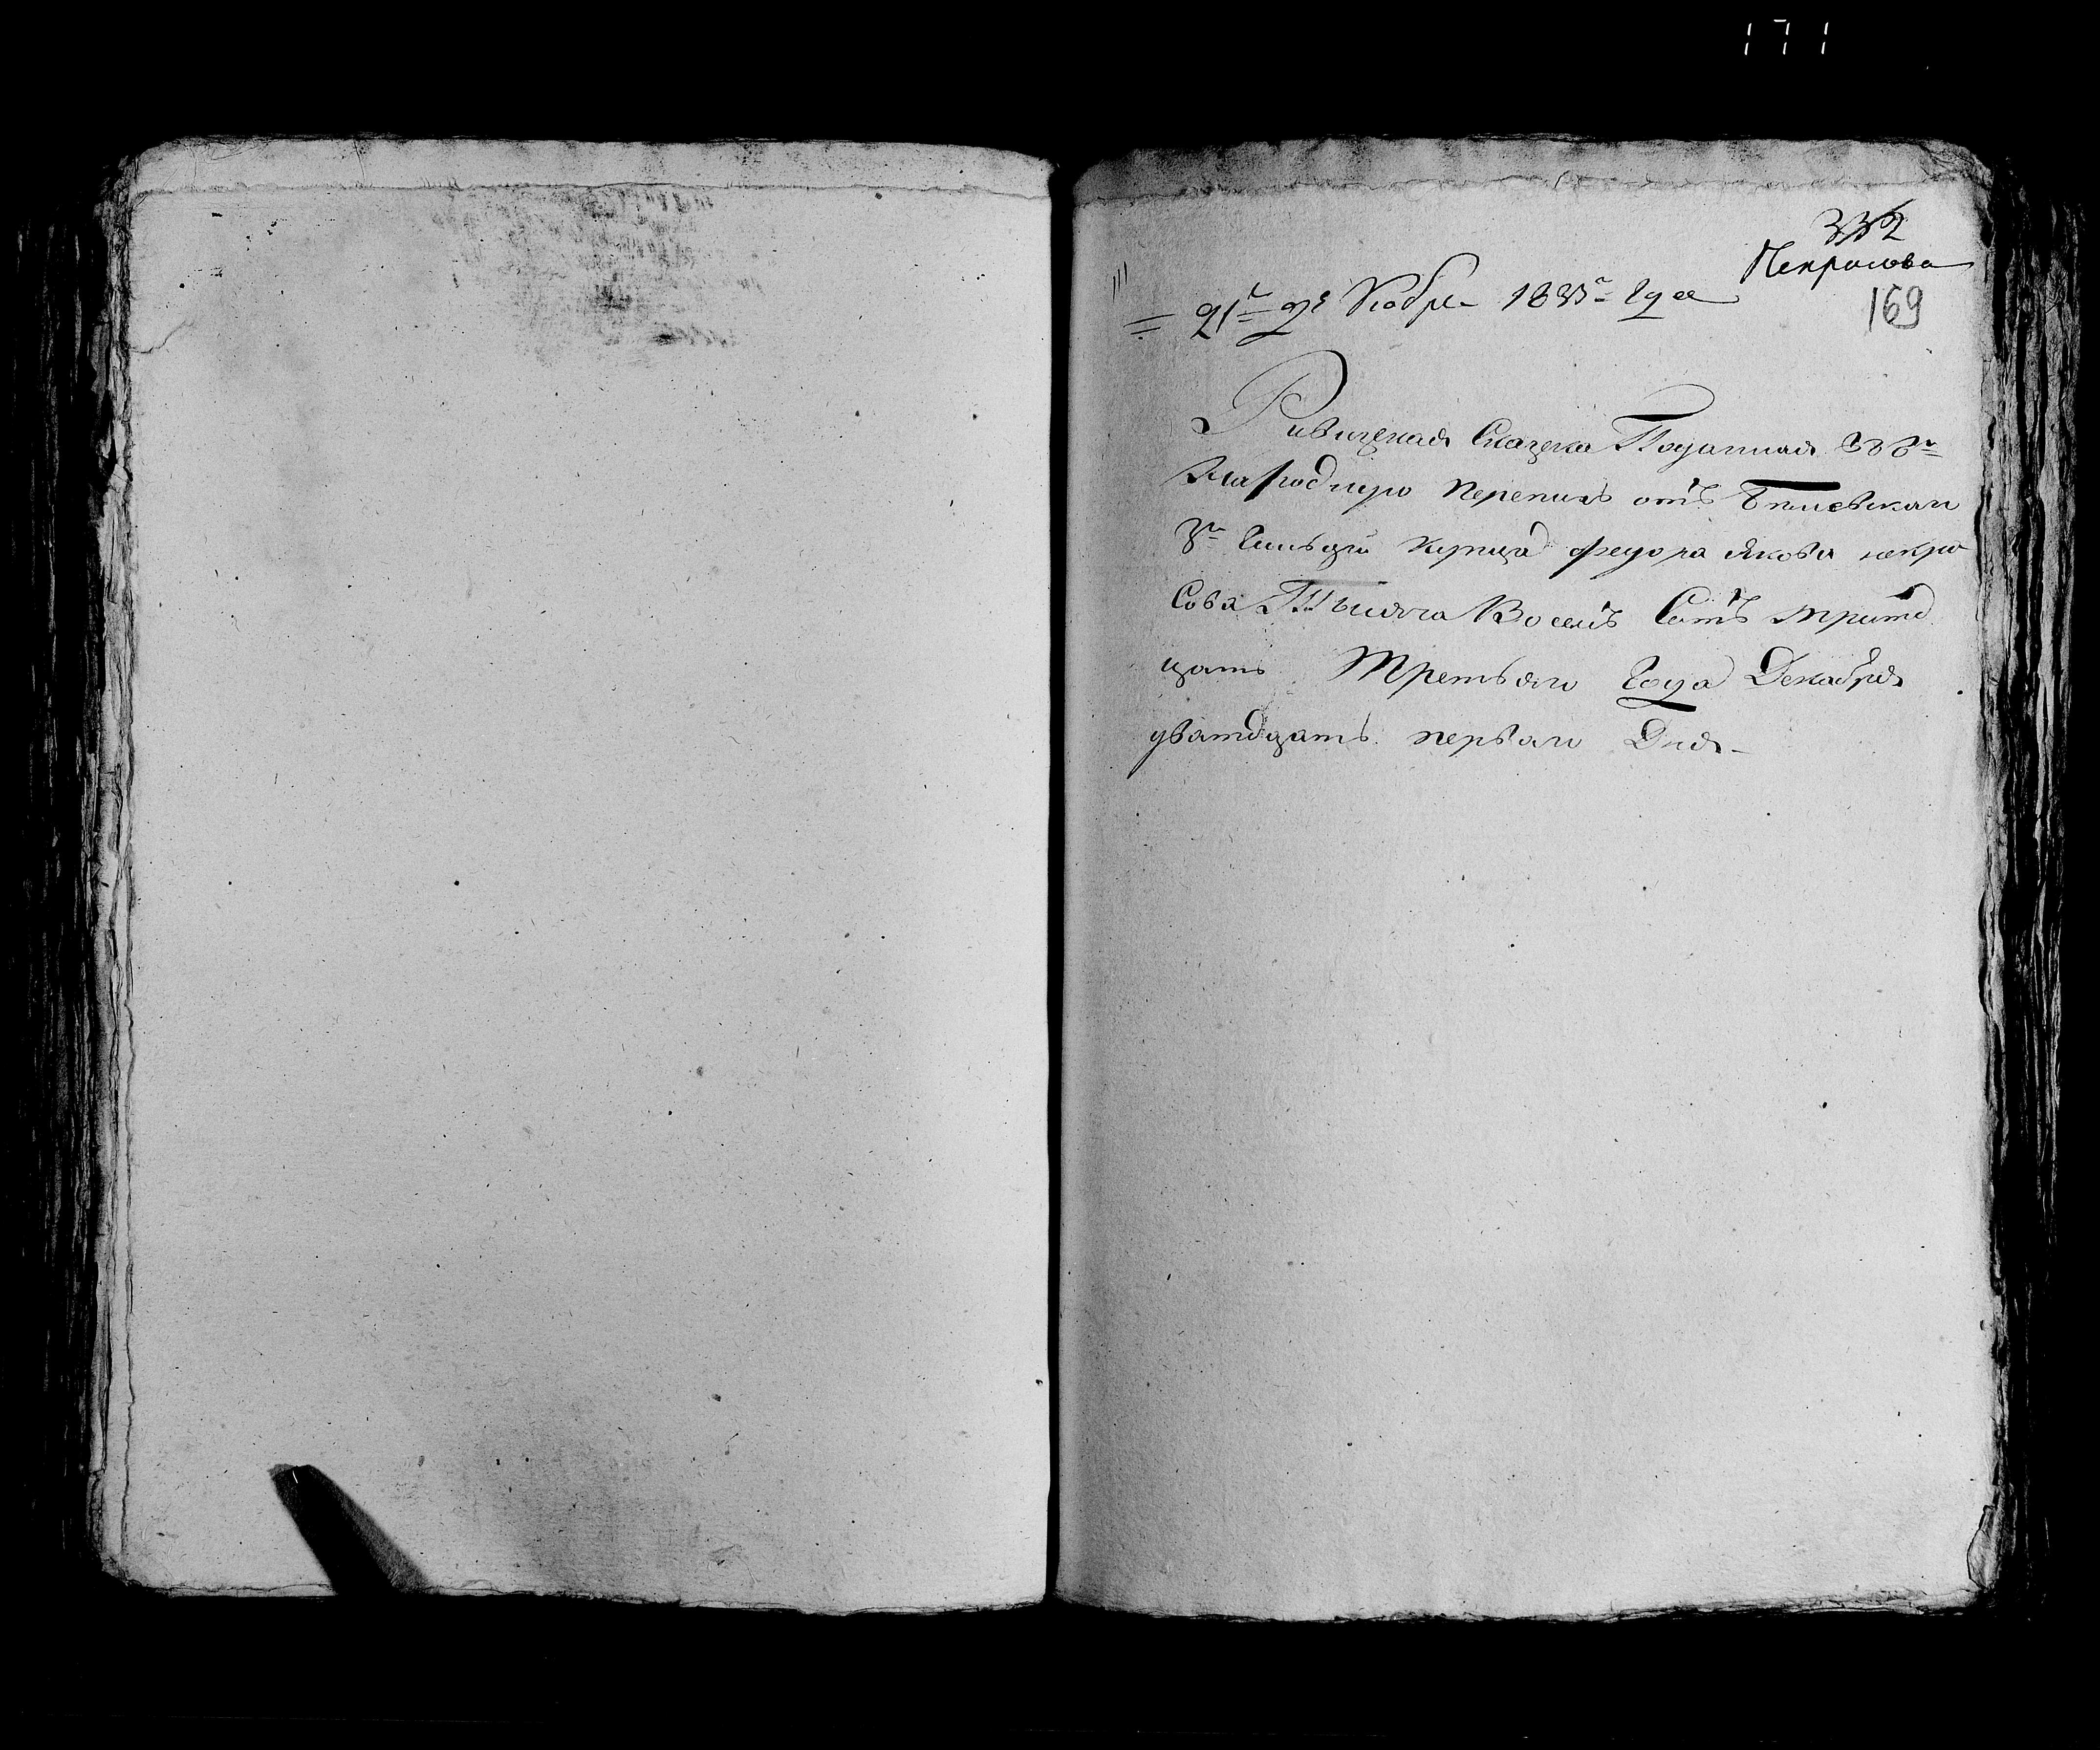 171
332
Некрасова
169
21го де Кабря 1833го года
Ривизская Сказска Поданная В 8ю
Народную перепись отъ
3й Гильдии купца федора Якова некра
Сова Тысяча Восемъ Сотъ тритд
цать Третьяго Года Декабря
дватдцать перваго Дня